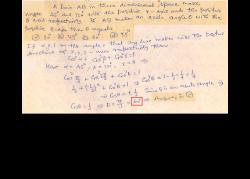 A line AB in three dimensional space makes
angle 45° and 120° with the positive x-axis and the positive
y-axis respectively. If AB makes an acute angle θ with the
positive z-axis then θ equals
45° 60° 75°
If α, β, γ are the angles that any line makes with the positive
direction of x, y, z axes respectively then
Cos²α + Cos²β + Cos²γ = 1
Here α = 45°, β = 120°, γ = θ ⇒
+ Cos²θ = 1
+ Cos²θ = 1 ⇒ Cos²θ = 1 -
⇒ Cosθ = ± 1/2 Since θ is an acute angle ⇒
Cosθ = 1/2 ⇒ θ = = 60° ⇒ Answer is